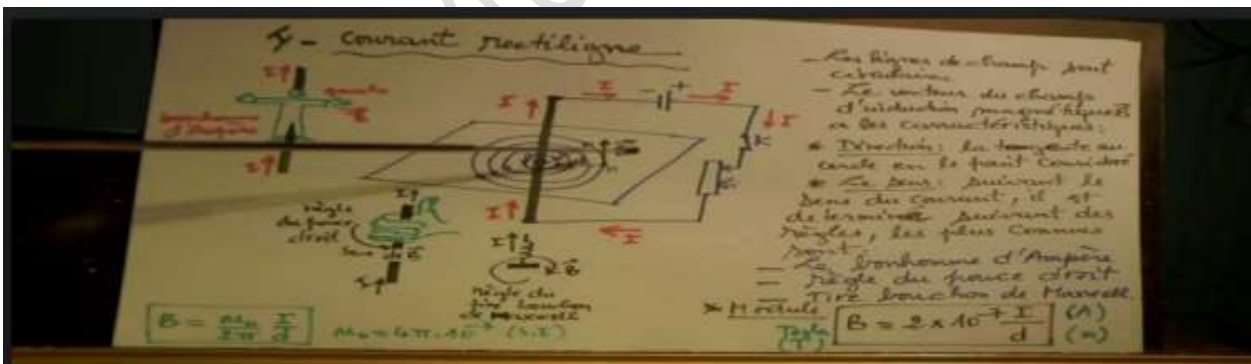 I - Courant rectiligne
I
I
gauche
B
bonhomme d'Ampère
I
I
I
I
K
I
I
I
I
règle du pouce droit
sens de B
I
I
règle du tire bouchon de Maxwell
B
- Les lignes de champ sont
circulaires
- Le vecteur du champ
d'induction magnétique B
a les caractéristiques:
* Direction: la tangente au
cercle en le point considéré
* Le sens: suivant le
sens du courant, il est
determiné suivant des
règles, les plus connues
sont
- Le bonhomme d'Ampère
- règle du pouce droit
- Tire bouchon de Maxwell
* Module
B = μ₀/2π I/d
μ₀ = 4π.10⁻⁷ (S.I)
Tesla (T)
B = 2 x 10⁻⁷ I/d
(A)
(m)